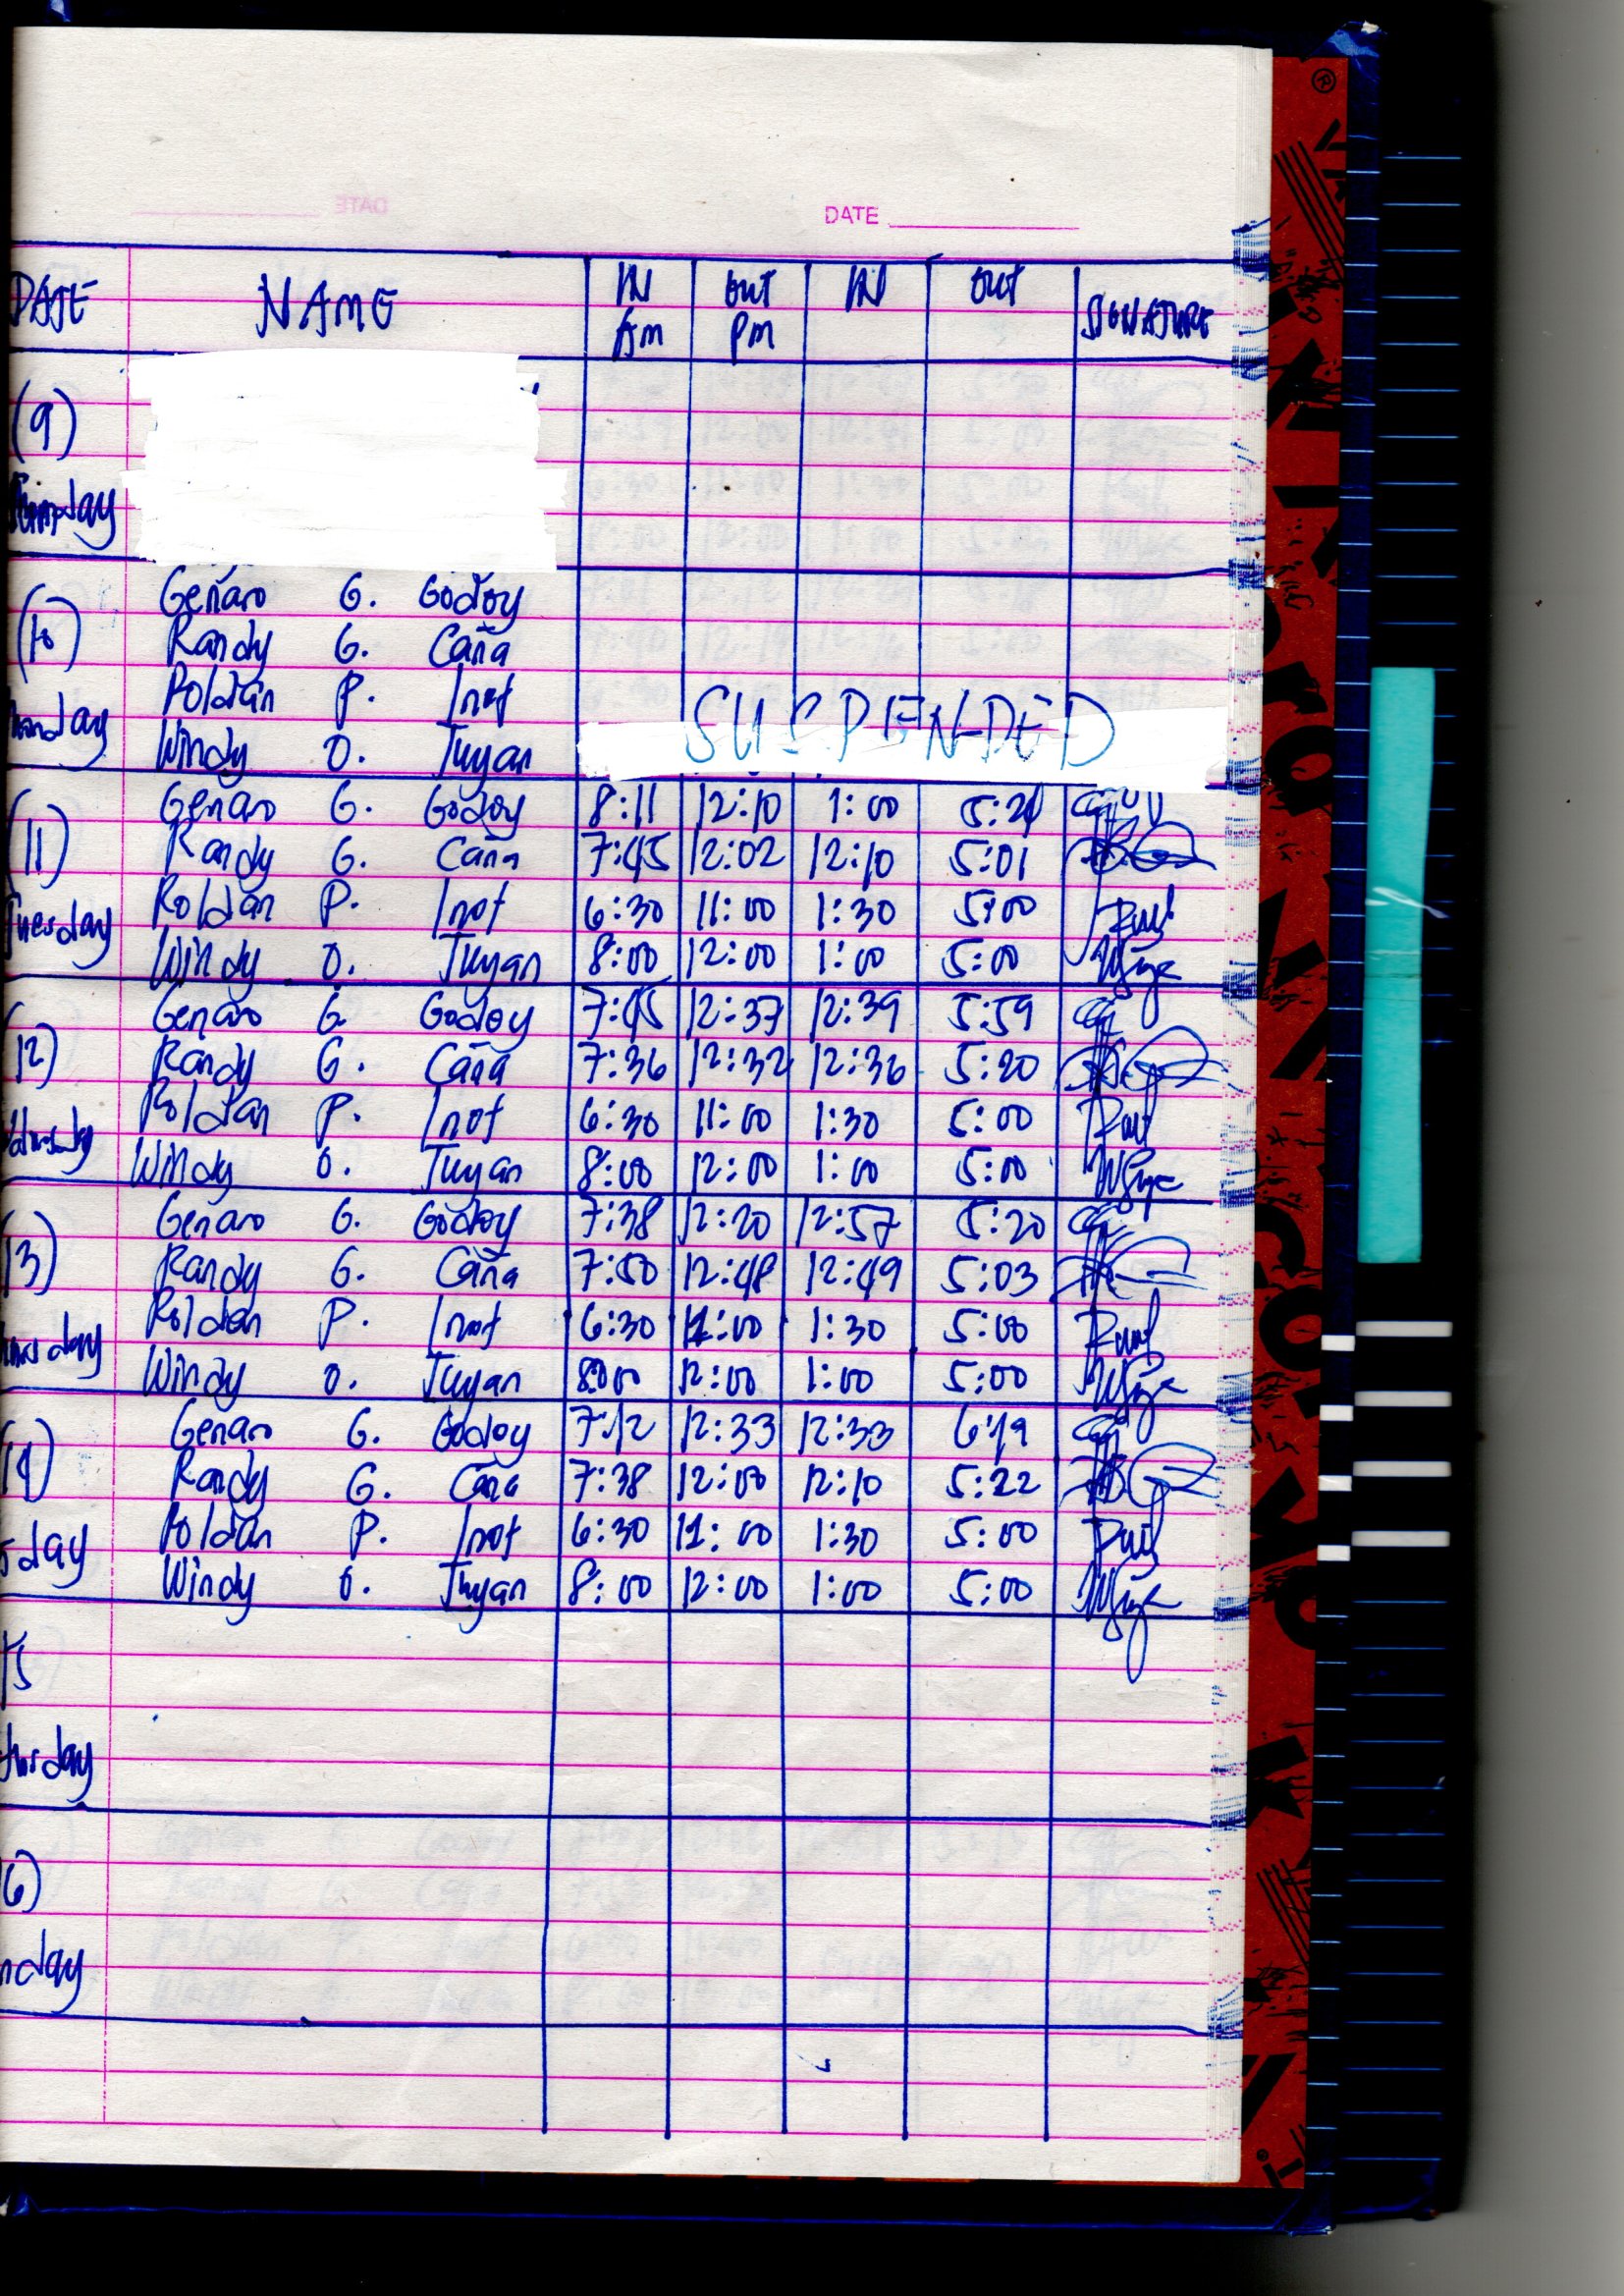 DATE
DATE NAME IN AM OUT PM IN OUT SIGNATURE
(9)
(10) Genaro G. Godoy
Randy G. Caña
Roldan P. Inot
Windy O. Tuyan
SUSPENDED
(11) Genaro G. Godoy 8:11 12:10 1:00
Randy G. Caña 7:45 12:02 12:10 5:01
Roldan P. Inot 6:30 11:00 1:30 5:00
Tuesday Windy O. Tuyan 8:00 12:00 1:00 5:00
12) Genaro G. Godoy 7:45 12:37 12:39 5:59
Randy G. Caña 7:36 12:32 12:36 5:20
Roldan P. Inot 6:30 11:00 1:30 5:00
Windy O. Tuyan 8:00 12:00 1:00 5:00
3) Genaro G. Godoy 7:38 12:20 12:57 5:20
Randy G. Caña 7:50 12:48 12:49 5:03
Roldan P. Inot 6:30 11:00 1:30 5:00
Windy O. Tuyan 8:00 12:00 1:00 5:00
Genaro G. Godoy 7:12 12:33 12:33 6:19
Randy G. Caña 7:38 12:00 12:10 5:22
Roldan P. Inot 6:30 11:00 1:30 5:00
day Windy O. Tuyan 8:00 12:00 1:00 5:00
15
6)
nday